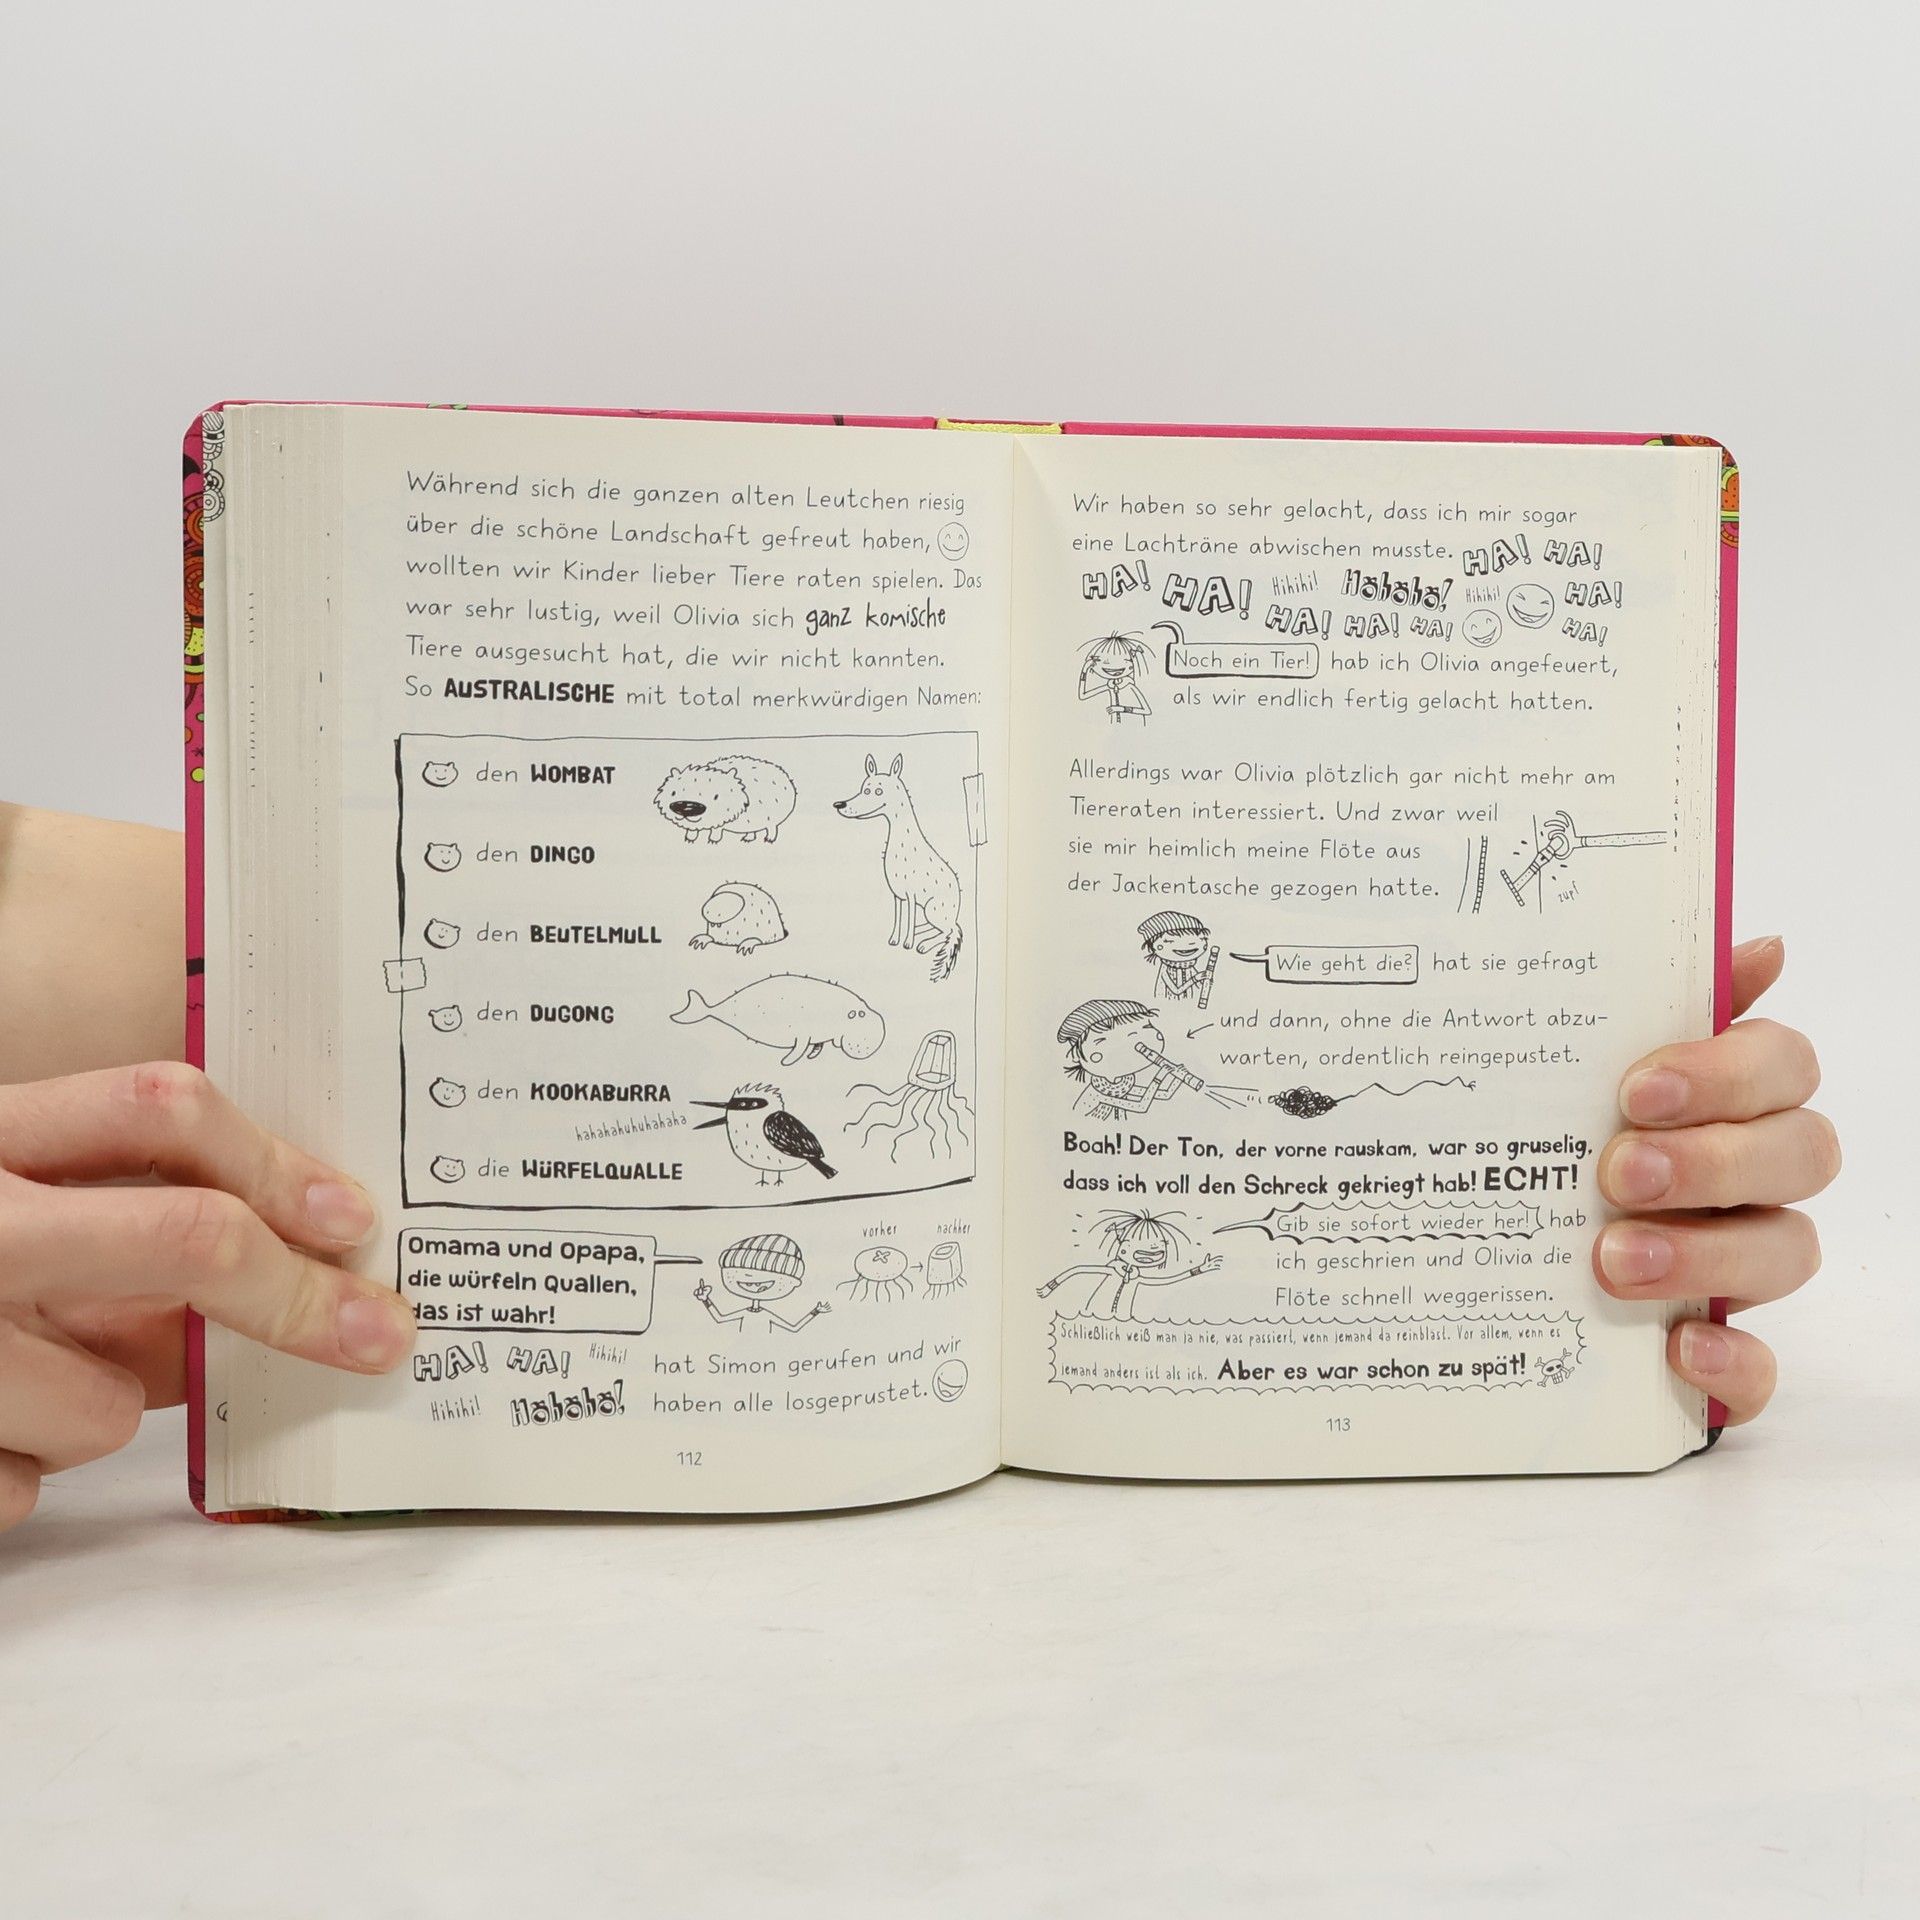 Während sich die ganzen alten Leutchen riesig
über die schöne Landschaft gefreut haben,
wollten wir Kinder lieber Tiere raten spielen. Das
war sehr lustig, weil Olivia sich ganz komische
Tiere ausgesucht hat, die wir nicht kannten.
So AUSTRALISCHE mit total merkwürdigen Namen:
den WOMBAT
den DINGO
den BEUTELMULL
den DUGONG
den KOOKABURRA
hahahahuhuhahaha
die WÜRFELQUALLE
Omama und Opapa,
die würfeln Quallen,
das ist wahr!
vorher nachher
HA! HA! Hihihi! hat Simon gerufen und wir
Hihihi! Höhöhö! haben alle losgeprustet.
112
Wir haben so sehr gelacht, dass ich mir sogar
eine Lachträne abwischen musste. HA! HA!
HA! HA! Hihihi! Höhöhö! Hihihi! HA!
HA! HA! HA! HA!
Noch ein Tier! hab ich Olivia angefeuert,
als wir endlich fertig gelacht hatten.
Allerdings war Olivia plötzlich gar nicht mehr am
Tiereraten interessiert. Und zwar weil
sie mir heimlich meine Flöte aus
der Jackentasche gezogen hatte.
zupf
Wie geht die? hat sie gefragt
und dann, ohne die Antwort abzu-
warten, ordentlich reingepustet.
Boah! Der Ton, der vorne rauskam, war so gruselig,
dass ich voll den Schreck gekriegt hab! ECHT!
Gib sie sofort wieder her! hab
ich geschrien und Olivia die
Flöte schnell weggerissen.
Schließlich weiß man ja nie, was passiert, wenn jemand da reinbläst. Vor allem, wenn es
jemand anders ist als ich. Aber es war schon zu spät!
113